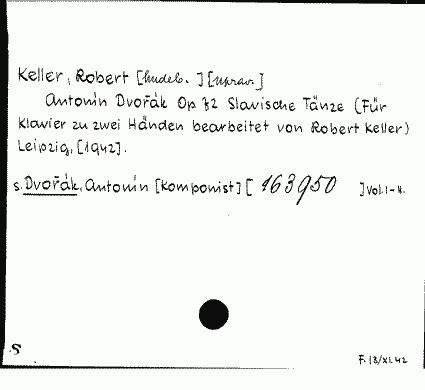 Keller, Robert [hudeb.] [uprav.]
Antonín Dvořák Op 72 Slavische Tänze (Für
Klavier zu zwei Händen bearbeitet von Robert Keller)
Leipzig, [1942].
s. Dvořák, Antonín [Komponist] [ 163950 ] Vol. I-II.
S
F. 18/XI.42